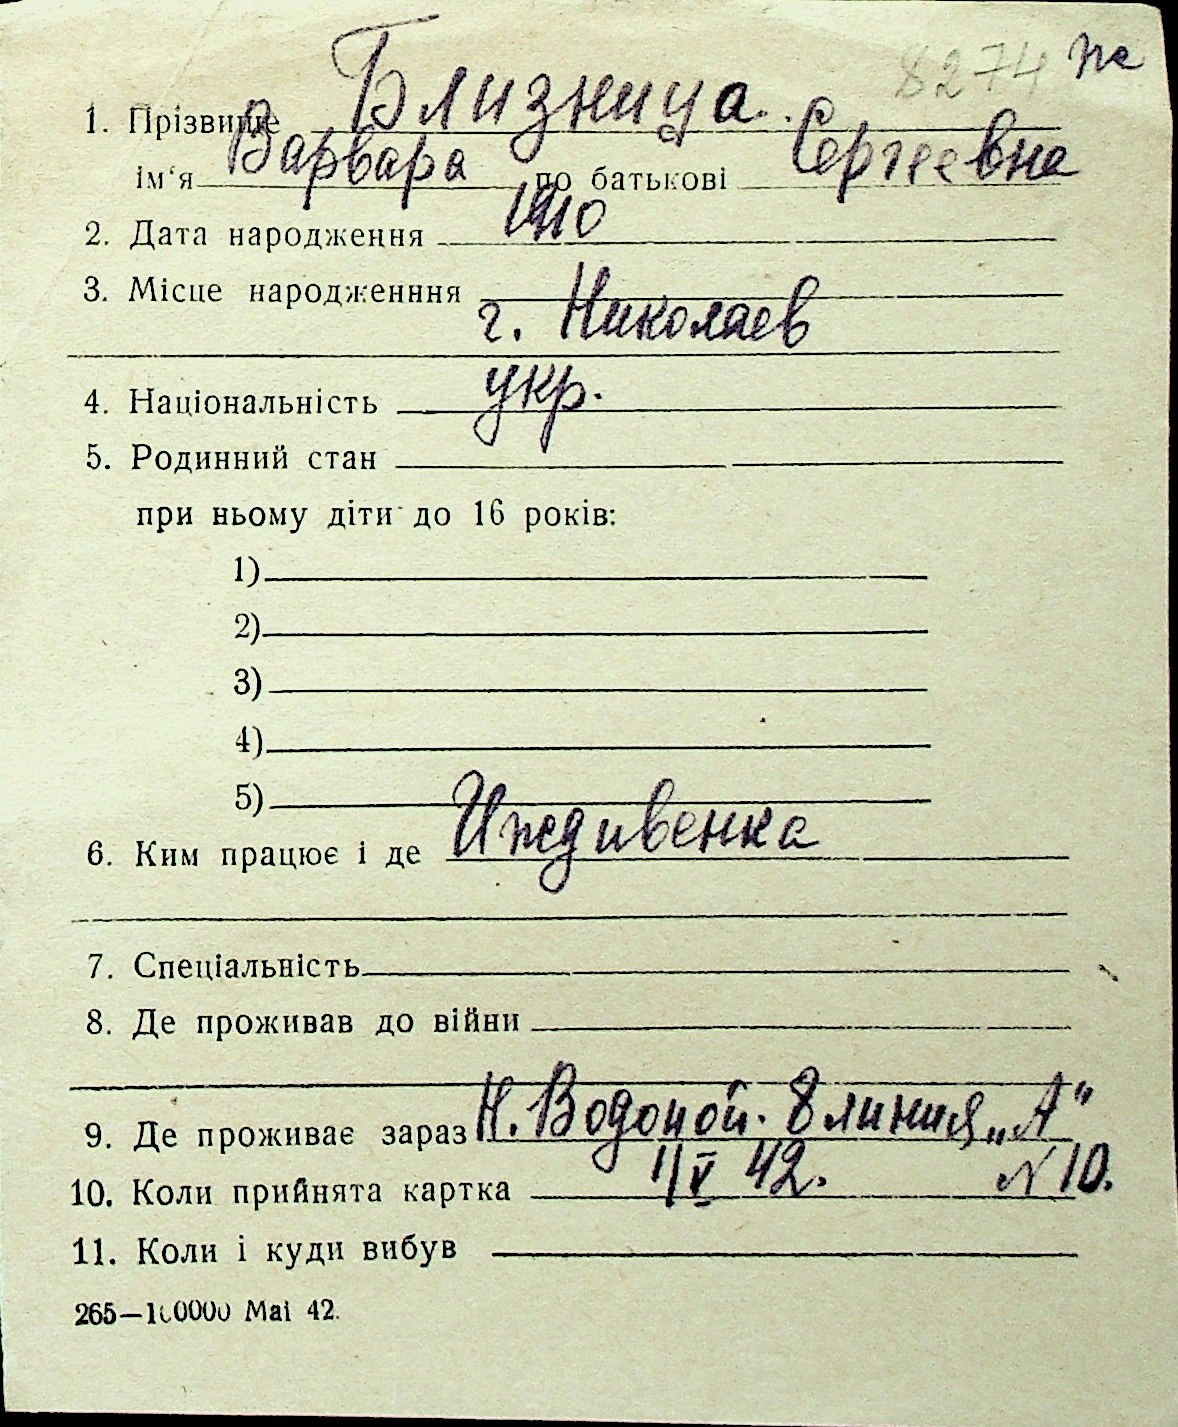 8274 же
1. Прізвище Близница.
ім‘я Варвара по батькові Сергеевна
2. Дата народження 1910
3. Місце народженння
г. Николаев
4. Національність укр.
5. Родинний стан
при ньому діти до 16 років:
1)
2)
3)
4)
5)
6. Ким працює і де Иждивенка
7. Спеціальність
8. Де проживав до війни
9. Де проживає зараз Н. Водопой. 8 линия „А“
10. Коли прийнята картка 1/V 42. № 10.
11. Коли і куди вибув
265—100000 Маі 42.